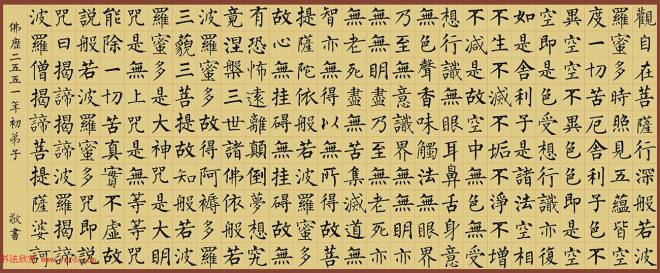 觀自在菩薩行深般若波
羅蜜多時照見五蘊皆空
度一切苦厄舍利子色不
異空空不異色色即是空
空即是色受想行識亦復
如是舍利子是諸法空相
不生不滅不垢不淨不增
不減是故空中無色無受
想行識無眼耳鼻舌身意
無色聲香味觸法無眼界
乃至無意識界無無明亦
無無明盡乃至無老死亦
無老死盡無苦集滅道無
智亦無得以無所得故菩
提薩陀依般若波羅蜜多
故心無挂礙無挂礙故無
有恐怖遠離顛倒夢想究
竟涅槃三世諸佛依般若
波羅蜜多故得阿耨多羅
三藐三菩提故知般若波
羅蜜多是大神咒是大明
咒是無上咒是無等等咒
能除一切苦真實不虛故
說般若波羅蜜多咒即說
咒曰揭諦揭諦波羅揭諦
波羅僧揭諦菩提薩婆訶
佛歷二五五一年初弟子 敬書
书法欣赏